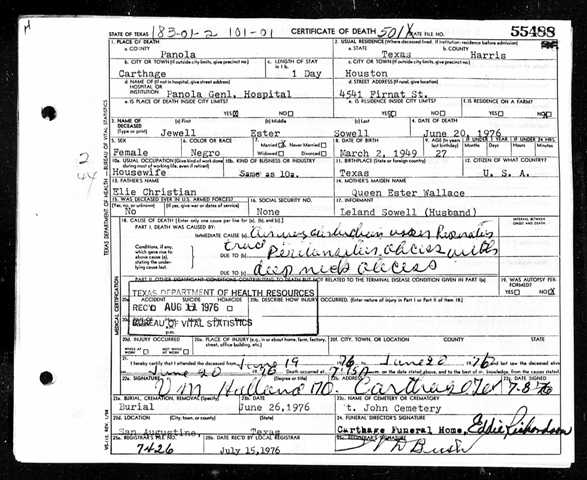 STATE OF TEXAS 183-01-2 101-01 CERTIFICATE OF DEATH 501X STATE FILE NO. 55488
1. PLACE OF DEATH 2. USUAL RESIDENCE (Where deceased lived. If institution: residence before admission)
a. COUNTY a. STATE b. COUNTY
Panola Texas Harris
b. CITY OR TOWN (If outside city limits, give precinct no.) c. LENGTH OF STAY c. CITY OR TOWN (If outside city limits, give precinct no.)
Carthage 1 Day Houston
d. NAME OF (If not in hospital, give street address) HOSPITAL OR INSTITUTION d. STREET ADDRESS (If rural, give location)
Panola Genl. Hospital 4541 Pirnat St.
e. IS PLACE OF DEATH INSIDE CITY LIMITS? e. IS RESIDENCE INSIDE CITY LIMITS? f. IS RESIDENCE ON A FARM?
YES NO YES NO YES NO
3. NAME OF DECEASED (a) First (b) Middle (c) Last 4. DATE OF DEATH
(Type or print) Jewell Ester Sowell June 20, 1976
5. SEX 6. COLOR OR RACE 7. Married Never Married Widowed Divorced 8. DATE OF BIRTH 9. AGE IF UNDER 1 YEAR IF UNDER 24 HRS.
Female Negro March 2, 1949 27
10a. USUAL OCCUPATION (Give kind of work done during most of working life, even if retired) 10b. KIND OF BUSINESS OR INDUSTRY 11. BIRTHPLACE 12. CITIZEN OF WHAT COUNTRY?
Housewife Same as 10a. Texas U. S. A.
13. FATHER'S NAME 14. MOTHER'S MAIDEN NAME
Elie Christian Queen Ester Wallace
15. WAS DECEASED EVER IN U.S. ARMED FORCES? 16. SOCIAL SECURITY NO. 17. INFORMANT
(Yes, no, or unknown) (If yes, give war or dates of service)
No None Leland Sowell (Husband)
18. CAUSE OF DEATH (Enter only one cause per line for (a), (b), and (c).) INTERVAL BETWEEN ONSET AND DEATH
PART I. DEATH WAS CAUSED BY:
IMMEDIATE CAUSE (a)
Conditions, if any, which gave rise to above cause (a), stating the underlying cause last.
DUE TO (b) abscess with
DUE TO (c) deep neck abscess
PART II. OTHER SIGNIFICANT CONDITIONS CONTRIBUTING TO DEATH BUT NOT RELATED TO THE TERMINAL DISEASE CONDITION GIVEN IN PART I(a) 19. WAS AUTOPSY PERFORMED?
YES NO
TEXAS DEPARTMENT OF HEALTH RESOURCES
ACCIDENT SUICIDE HOMICIDE 20b. DESCRIBE HOW INJURY OCCURRED. (Enter nature of injury in Part I or Part II of Item 18.)
REC'D AUG 1976
BUREAU OF VITAL STATISTICS
20d. INJURY OCCURRED 20e. PLACE OF INJURY (e.g., in or about home, farm, factory, street, office building, etc.) 20f. CITY, TOWN, OR LOCATION COUNTY STATE
WHILE AT WORK NOT WHILE AT WORK
21. I hereby certify that I attended the deceased from June 19 76 June 20 76
June 20 76 Death occurred at 7:15A m. on the date stated above, and to the best of my knowledge, from the causes stated.
22a. SIGNATURE (Degree or title) 22b. ADDRESS 22c. DATE SIGNED
Holland MD. Carthage Tex 7-8-76
23a. BURIAL, CREMATION, REMOVAL (Specify) 23b. DATE 23c. NAME OF CEMETERY OR CREMATORY
Burial June 26,1976 t. John Cemetery
23d. LOCATION (City, town, or county) (State) 24. FUNERAL DIRECTOR'S SIGNATURE
San Augustine, Texas Carthage Funeral Home, Eddie Richardson
25a. REGISTRAR'S FILE NO. 25b. DATE REC'D BY LOCAL REGISTRAR 25c. REGISTRAR'S SIGNATURE
7426 July 15,1976 Bush
TEXAS DEPARTMENT OF HEALTH — BUREAU OF VITAL STATISTICS
MEDICAL CERTIFICATION